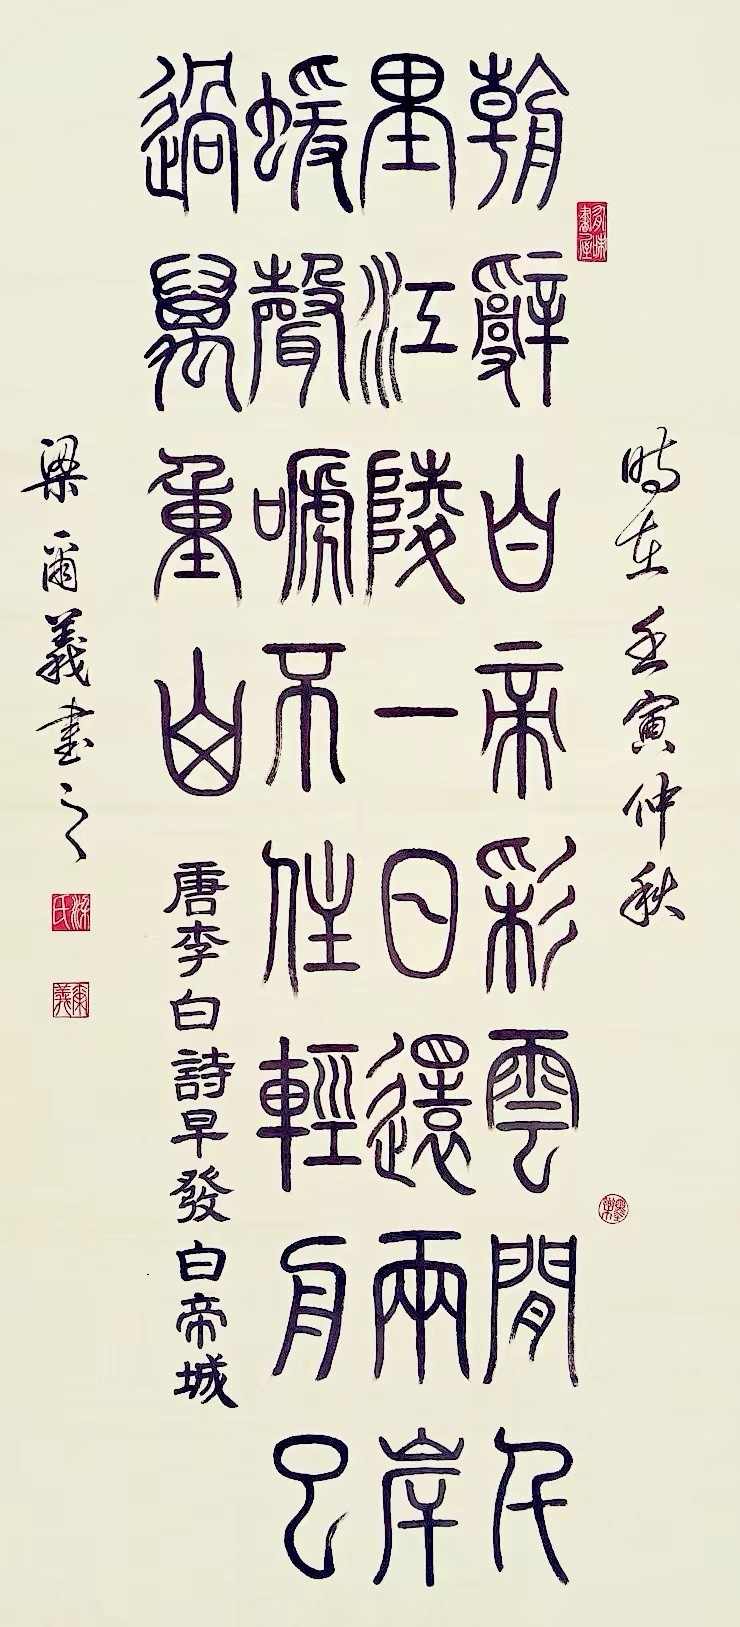 時在壬寅仲秋
朝辭白帝彩雲閒千
里江陵一日還兩岸
蝯聲嗁不住輕舟已
過萬重山
唐李白詩早發白帝城
梁爾義書之
梁氏